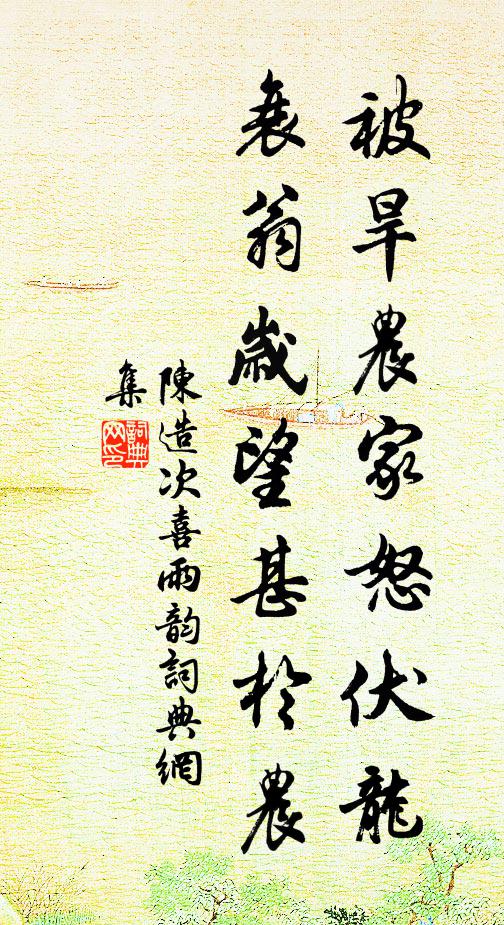 被旱農家怒伏龍
衰翁歲望甚於農
陳造次喜雨韵詞典網
集
詞典
网印